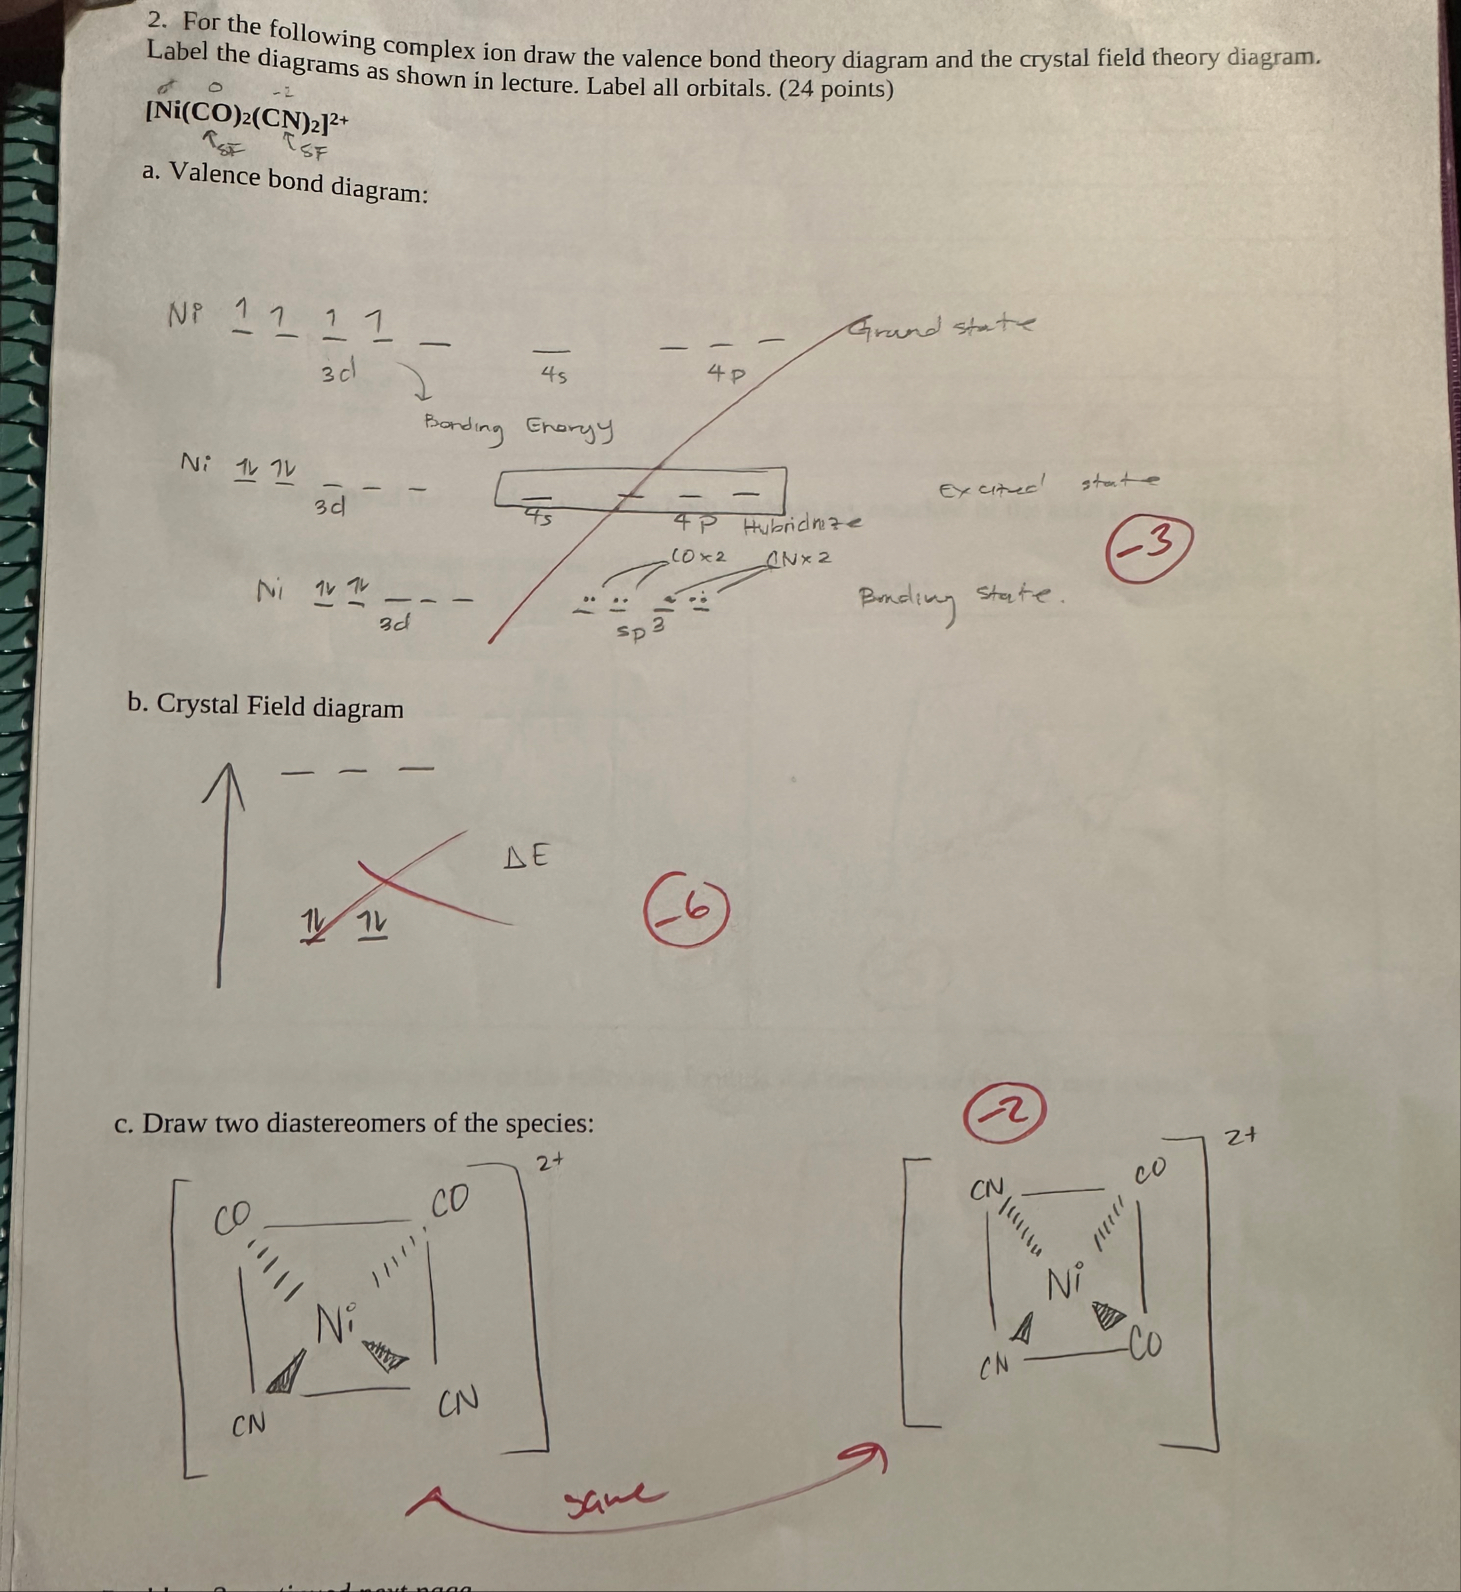 2. For the following complex ion draw the valence bond theory diagram and the crystal field theory diagram.
Label the diagrams as shown in lecture. Label all orbitals. (24 points)
0 -1
[Ni(CO)₂(CN)₂]²⁺
↑SF ↑SF
a. Valence bond diagram:
Ni 1 1 1 1 _ _ _ _ _ Grund state
3d 4s 4p
Bonding Energy
Ni 1↓ 1↓ _ _ _ _ _ _ _ Excited state
3d 4s 4p Hybridnize
-3
CO×2 CN×2
Ni 1↓ 1↓ _ _ _ .. .. .. .. Bonding state.
3d sp3
b. Crystal Field diagram
_ _ _
ΔE
1↓ 1↓
-6
c. Draw two diastereomers of the species:
-2
2+ 2+
CO CO CN CO
Ni Ni
CN CN CN CO
same